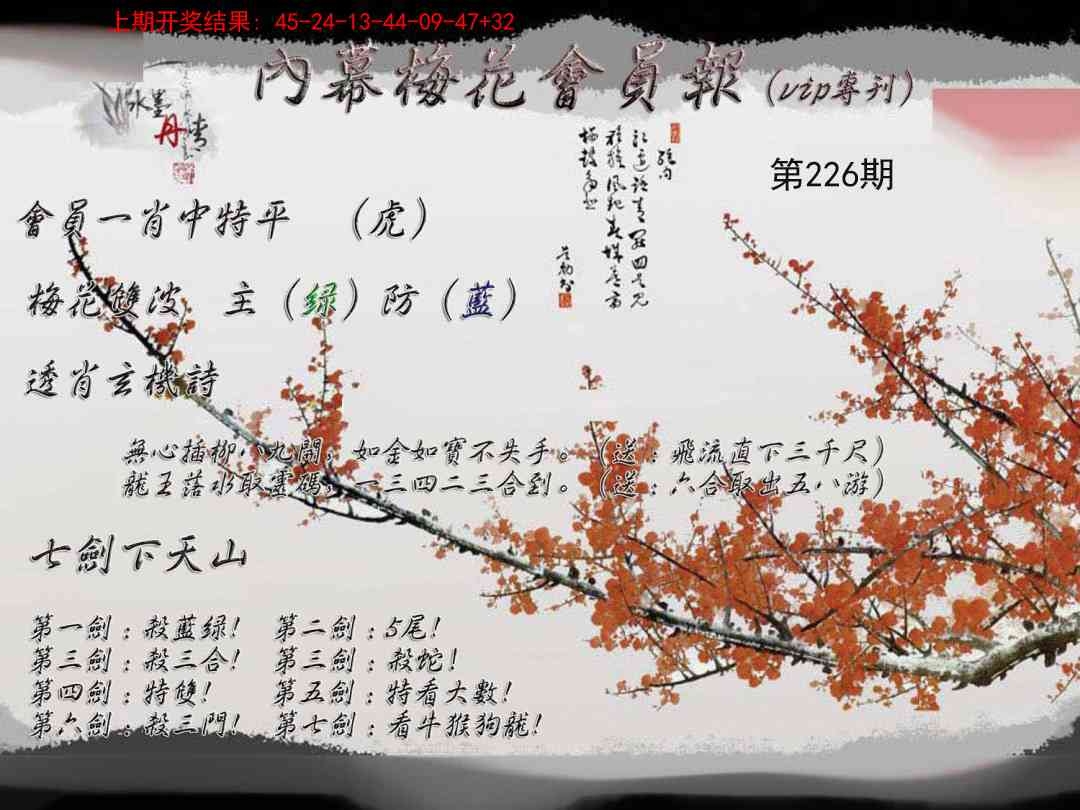 上期开奖结果: 45-24-13-44-09-47+32
內幕梅花會員報(vip專刊)
水墨
丹青
第226期
會員一肖中特平 (虎)
梅花雙波 主(绿)防(藍)
透肖玄機詩
無心插柳八九開,如金如寶不失手。(送:飛流直下三千尺)
龍王落水取靈碼,一三四二三合到。(送:六合取出五八游)
七劍下天山
第一劍:殺藍绿! 第二劍:5尾!
第三劍:殺三合! 第三劍:殺蛇!
第四劍:特雙! 第五劍:特看大數!
第六劍:殺三門! 第七劍:看牛猴狗龍!